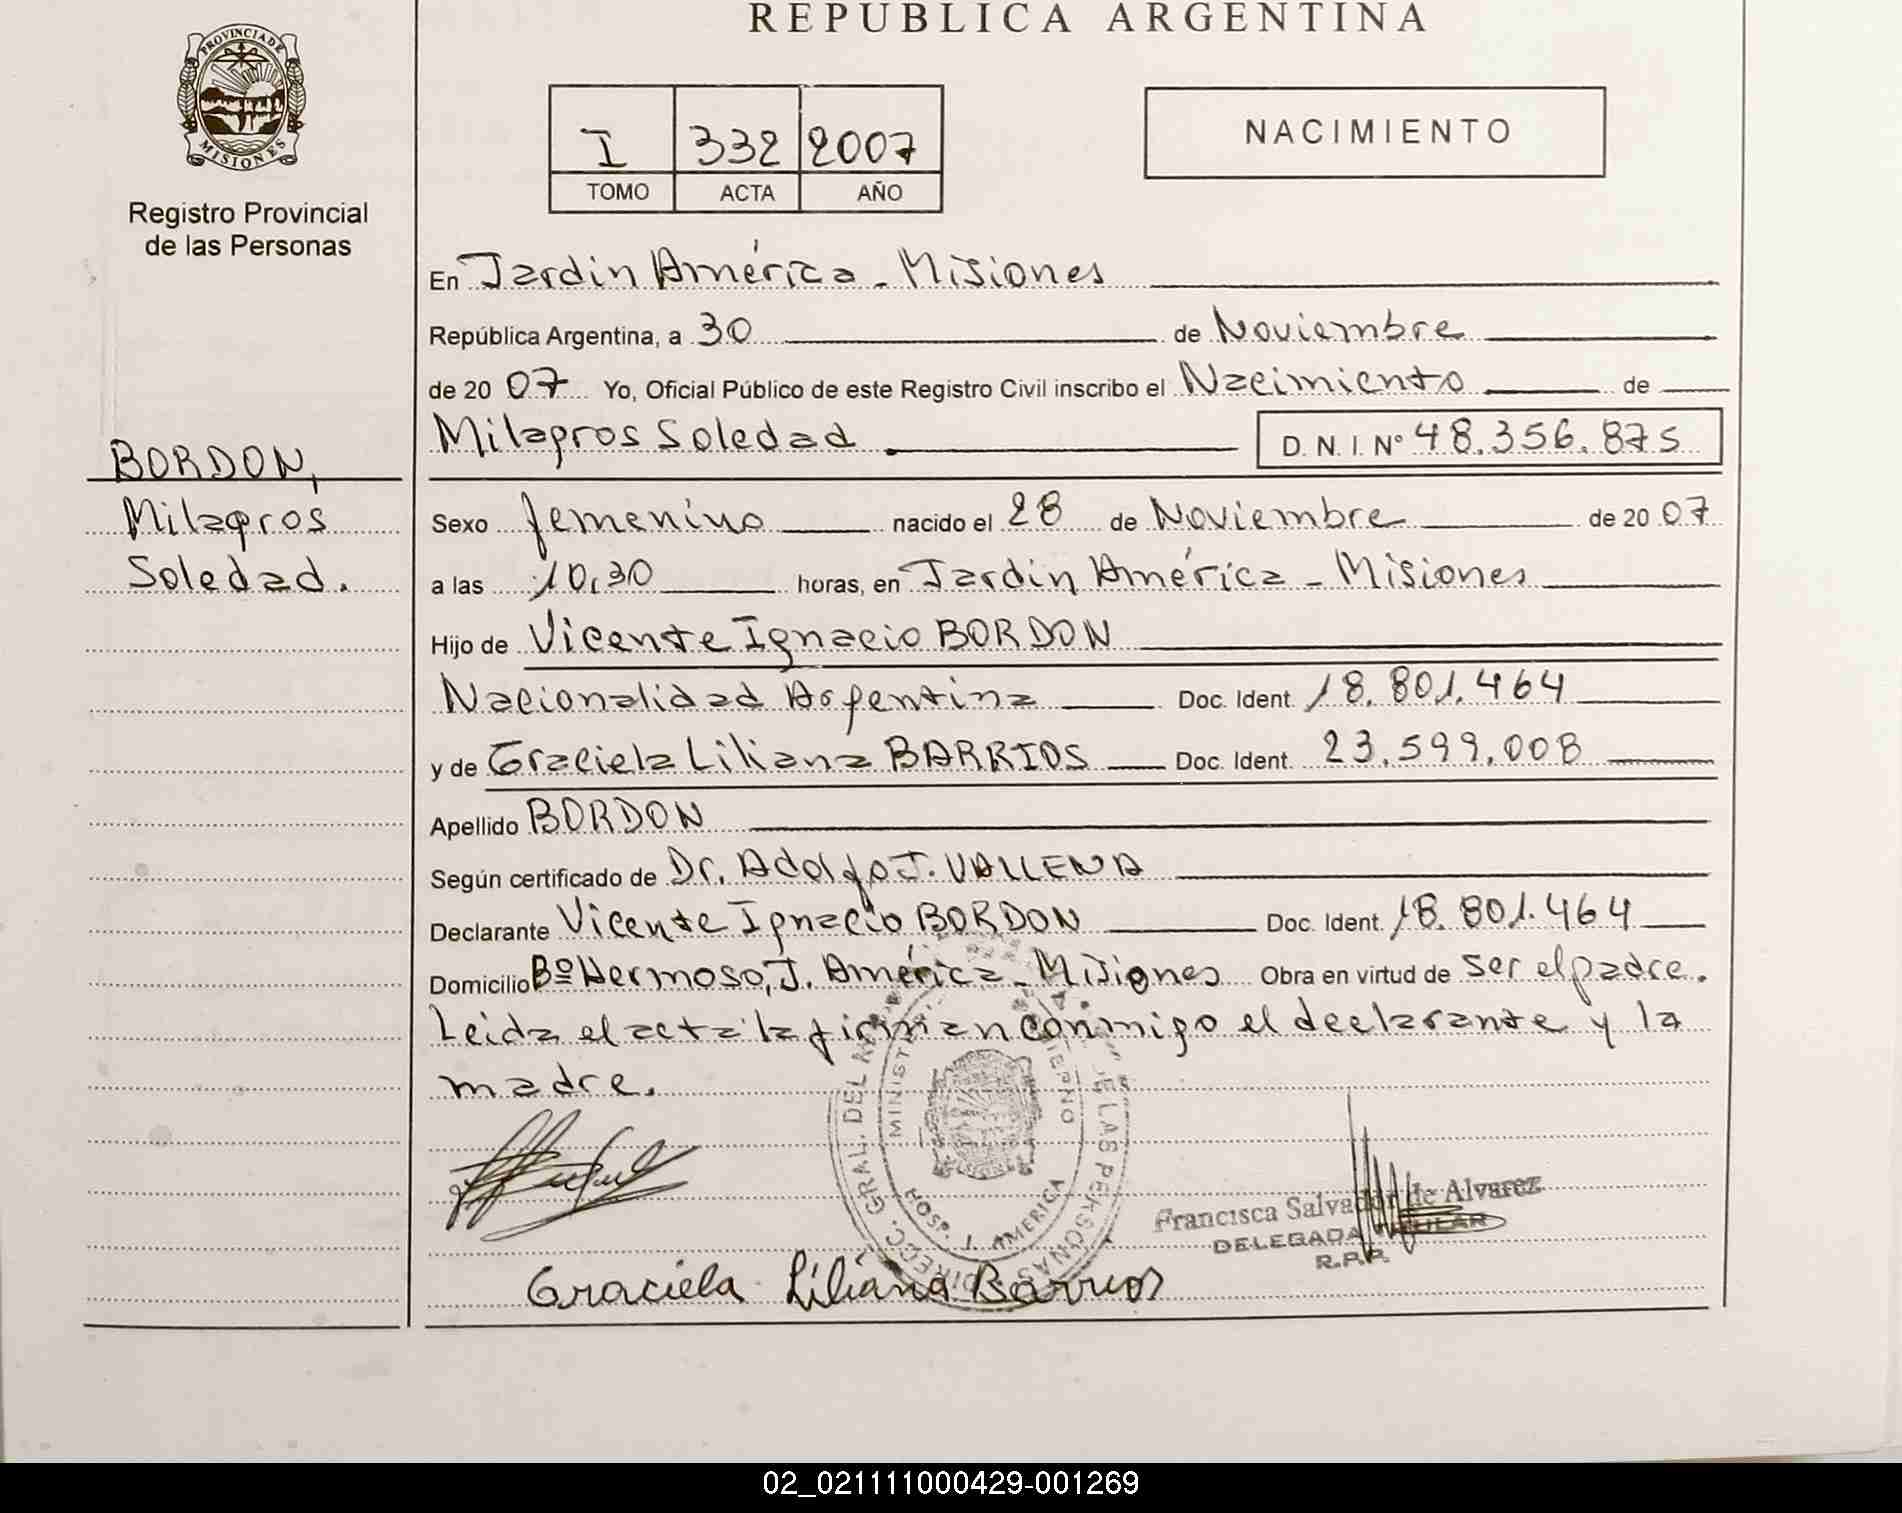 REPUBLICA ARGENTINA
PROVINCIA DE
MISIONES
Registro Provincial
de las Personas
I 332 2007
TOMO ACTA AÑO
NACIMIENTO
En Jardín América - Misiones
República Argentina, a 30 de Noviembre
de 2007 Yo, Oficial Público de este Registro Civil inscribo el Nacimiento de
Milagros Soledad D. N. I. Nº 48.356.875
BORDON,
Milagros
Soledad.
Sexo femenino nacido el 28 de Noviembre de 2007
a las 10,30 horas, en Jardín América - Misiones
Hijo de Vicente Ignacio BORDON
Nacionalidad Argentina Doc. Ident. 18.801.464
y de Graciela Liliana BARRIOS Doc. Ident. 23.599.008
Apellido BORDON
Según certificado de Dr. Adolfo J. VALLENA
Declarante Vicente Ignacio BORDON Doc. Ident. 18.801.464
Domicilio Bº Hermoso, J. América - Misiones Obra en virtud de ser el padre.
Leida el acta la firman conmigo el declarante y la
madre.
HOSP. J. AMERICA
Francisca Salvador de Alvarez
DELEGADA TITULAR
R.P.P.
Graciela Liliana Barrios
02_021111000429-001269